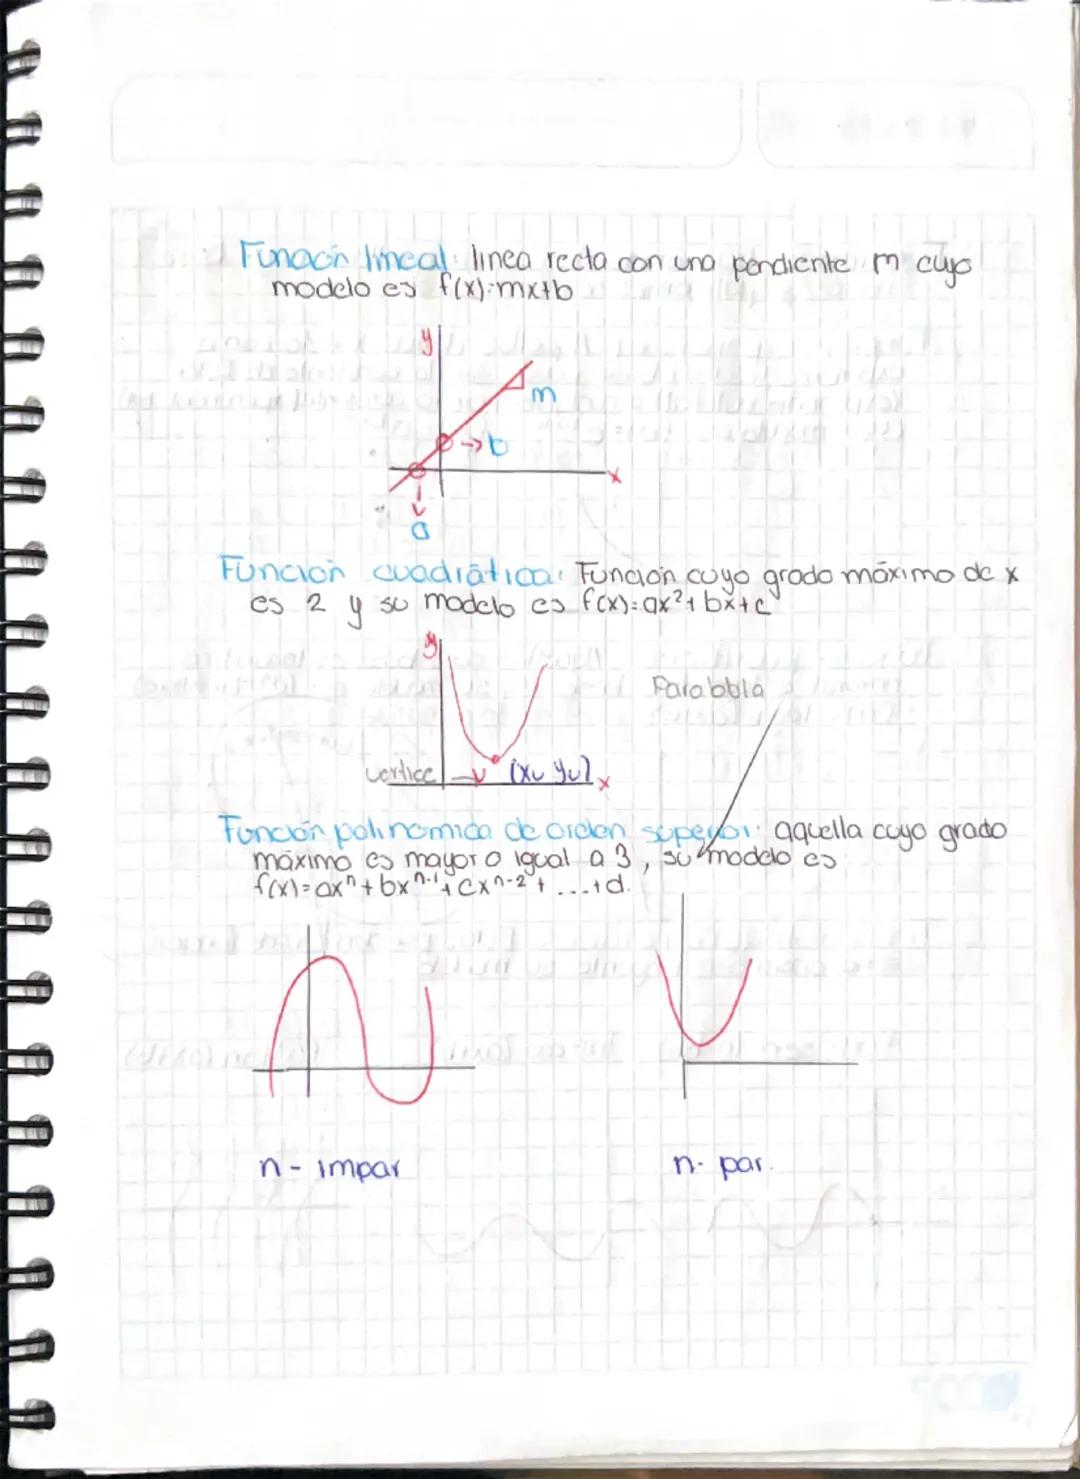 Función lineal: linea recta con una pendiente m cuyo
modelo es f(x)=mx+b
y
m
→ b
x
a
Función cuadrática: Función cuyo grado máximo de x
es 2 y su modelo es f(x)=ax²+bx+c
y
Parabola
vertice → (xv yv)
x
Función polinomica de orden superior: aquella cuyo grado
máximo es mayor o igual a 3, su modelo es
f(x)=axⁿ+bxⁿ⁻¹+cxⁿ⁻²+...+d.
n - impar
n - par.